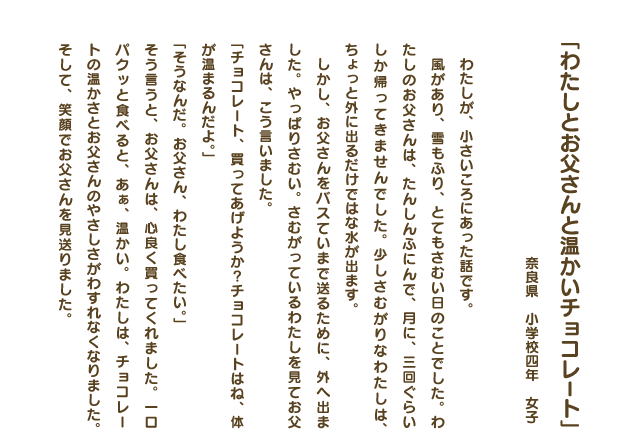 「わたしとお父さんと温かいチョコレート」
奈良県　小学校四年　女子
わたしが、小さいころにあった話です。
風があり、雪もふり、とてもさむい日のことでした。わ
たしのお父さんは、たんしんふにんで、月に、三回ぐらい
しか帰ってきませんでした。少しさむがりなわたしは、
ちょっと外に出るだけではな水が出ます。
しかし、お父さんをバスていまで送るために、外へ出ま
した。やっぱりさむい。さむがっているわたしを見てお父
さんは、こう言いました。
「チョコレート、買ってあげようか？チョコレートはね、体
が温まるんだよ。」
「そうなんだ。お父さん、わたし食べたい。」
そう言うと、お父さんは、心良く買ってくれました。一口
パクッと食べると、あぁ、温かい。わたしは、チョコレー
トの温かさとお父さんのやさしさがわすれなくなりました。
そして、笑顔でお父さんを見送りました。